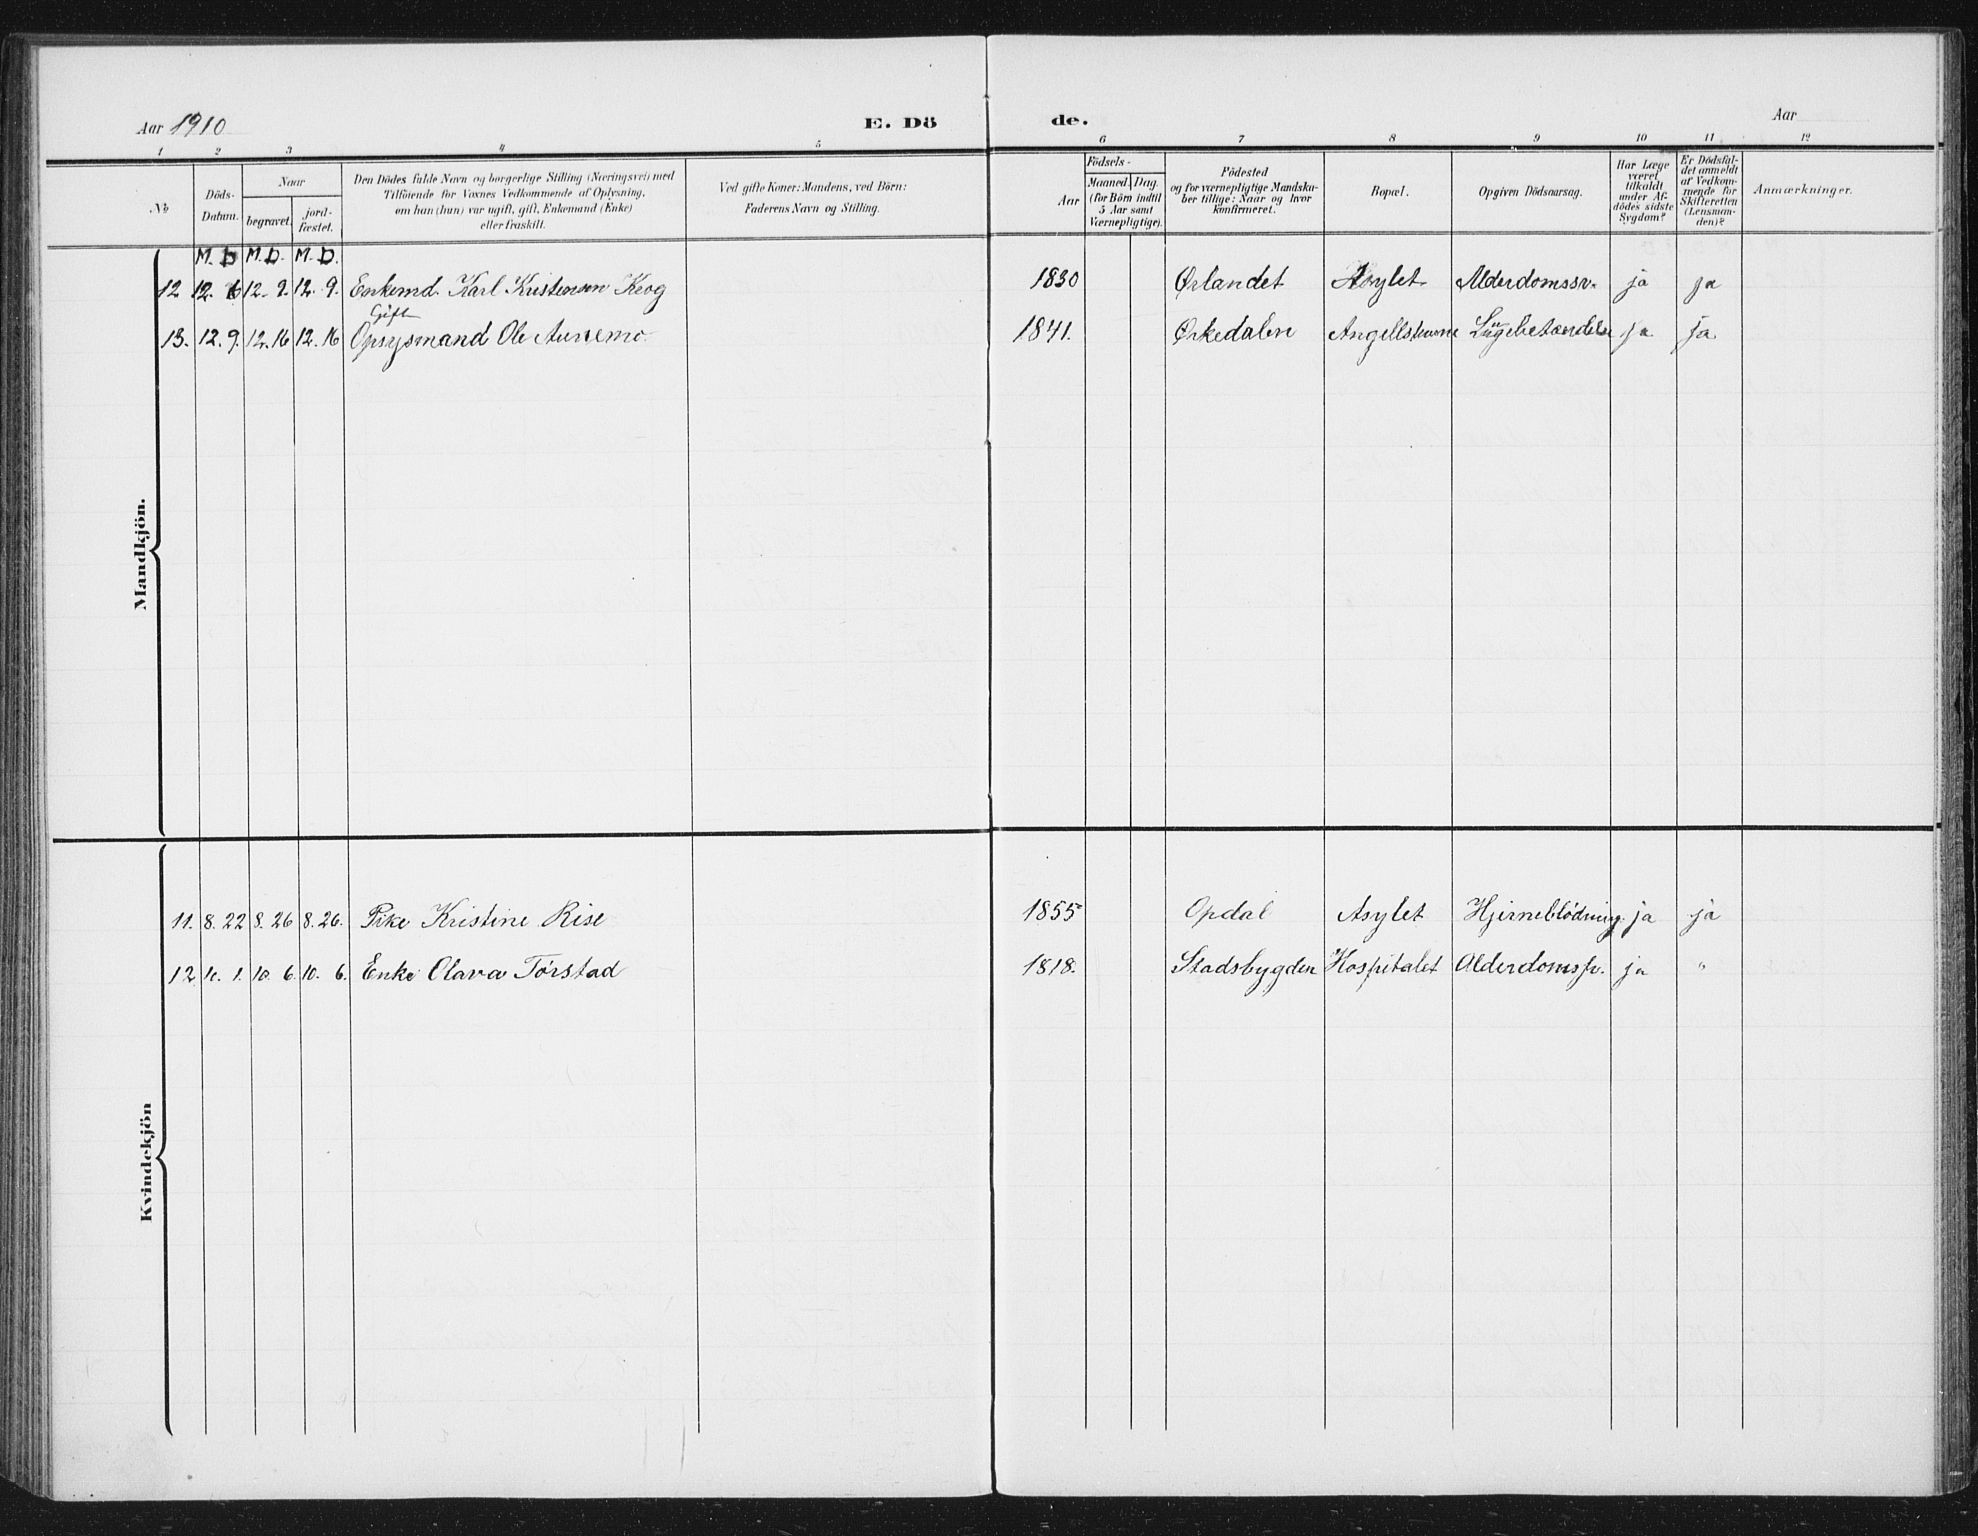 Aar 1910 E. Dö de. Aar
1 2 3 4 5 6 7 8 9 10 11 12
№
Döds-
Datum.
Naar
begravet.
jord-
fæstet.
Den Dödes fulde Navn og borgerlige Stilling (Næringsvei) med
Tilföiende for Voxnes Vedkommende af Oplysning,
om han (hun) var ugift, gift, Enkemand (Enke)
eller fraskilt.
Ved gifte Koner: Mandens, ved Börn:
Faderens Navn og Stilling.
Födsels-
Aar
Maaned. Dag.
(for Börn indtil
5 Aar samt
Værnepligtige).
Födested
og for værnepligtige Mandska-
ber tillige: Naar og hvor
konfirmeret.
Bopæl.
Opgiven Dödsaarsag.
Har Læge
været
tilkaldt
under Af-
dödes sidste
Sygdom?
Er Dödsfal-
det anmeldt
af Vedkom-
mende for
Skifteretten
(Lensman-
den)?
Anmærkninger.
Mandkjön.
M. D. M. D. M. D.
12 12. 6 12. 9. 12. 9. Enkemd. Karl Kristensen 1830 Ørlandet Asylet Alderdomssv. ja ja
Gift
13. 12. 9. 12. 16 12. 16 Opsysmand Ole Aunemo 1841. Ørkedalen ja ja
Kvindekjön
11. 8. 22 8. 26 8. 26. Pike Kristine Rise 1855 Opdal Asylet Hjerneblödning. ja ja
12 1. 10. 6. 10. 6. Enke Olava Törstad 1818. Stadsbygden Hospitalet ja "